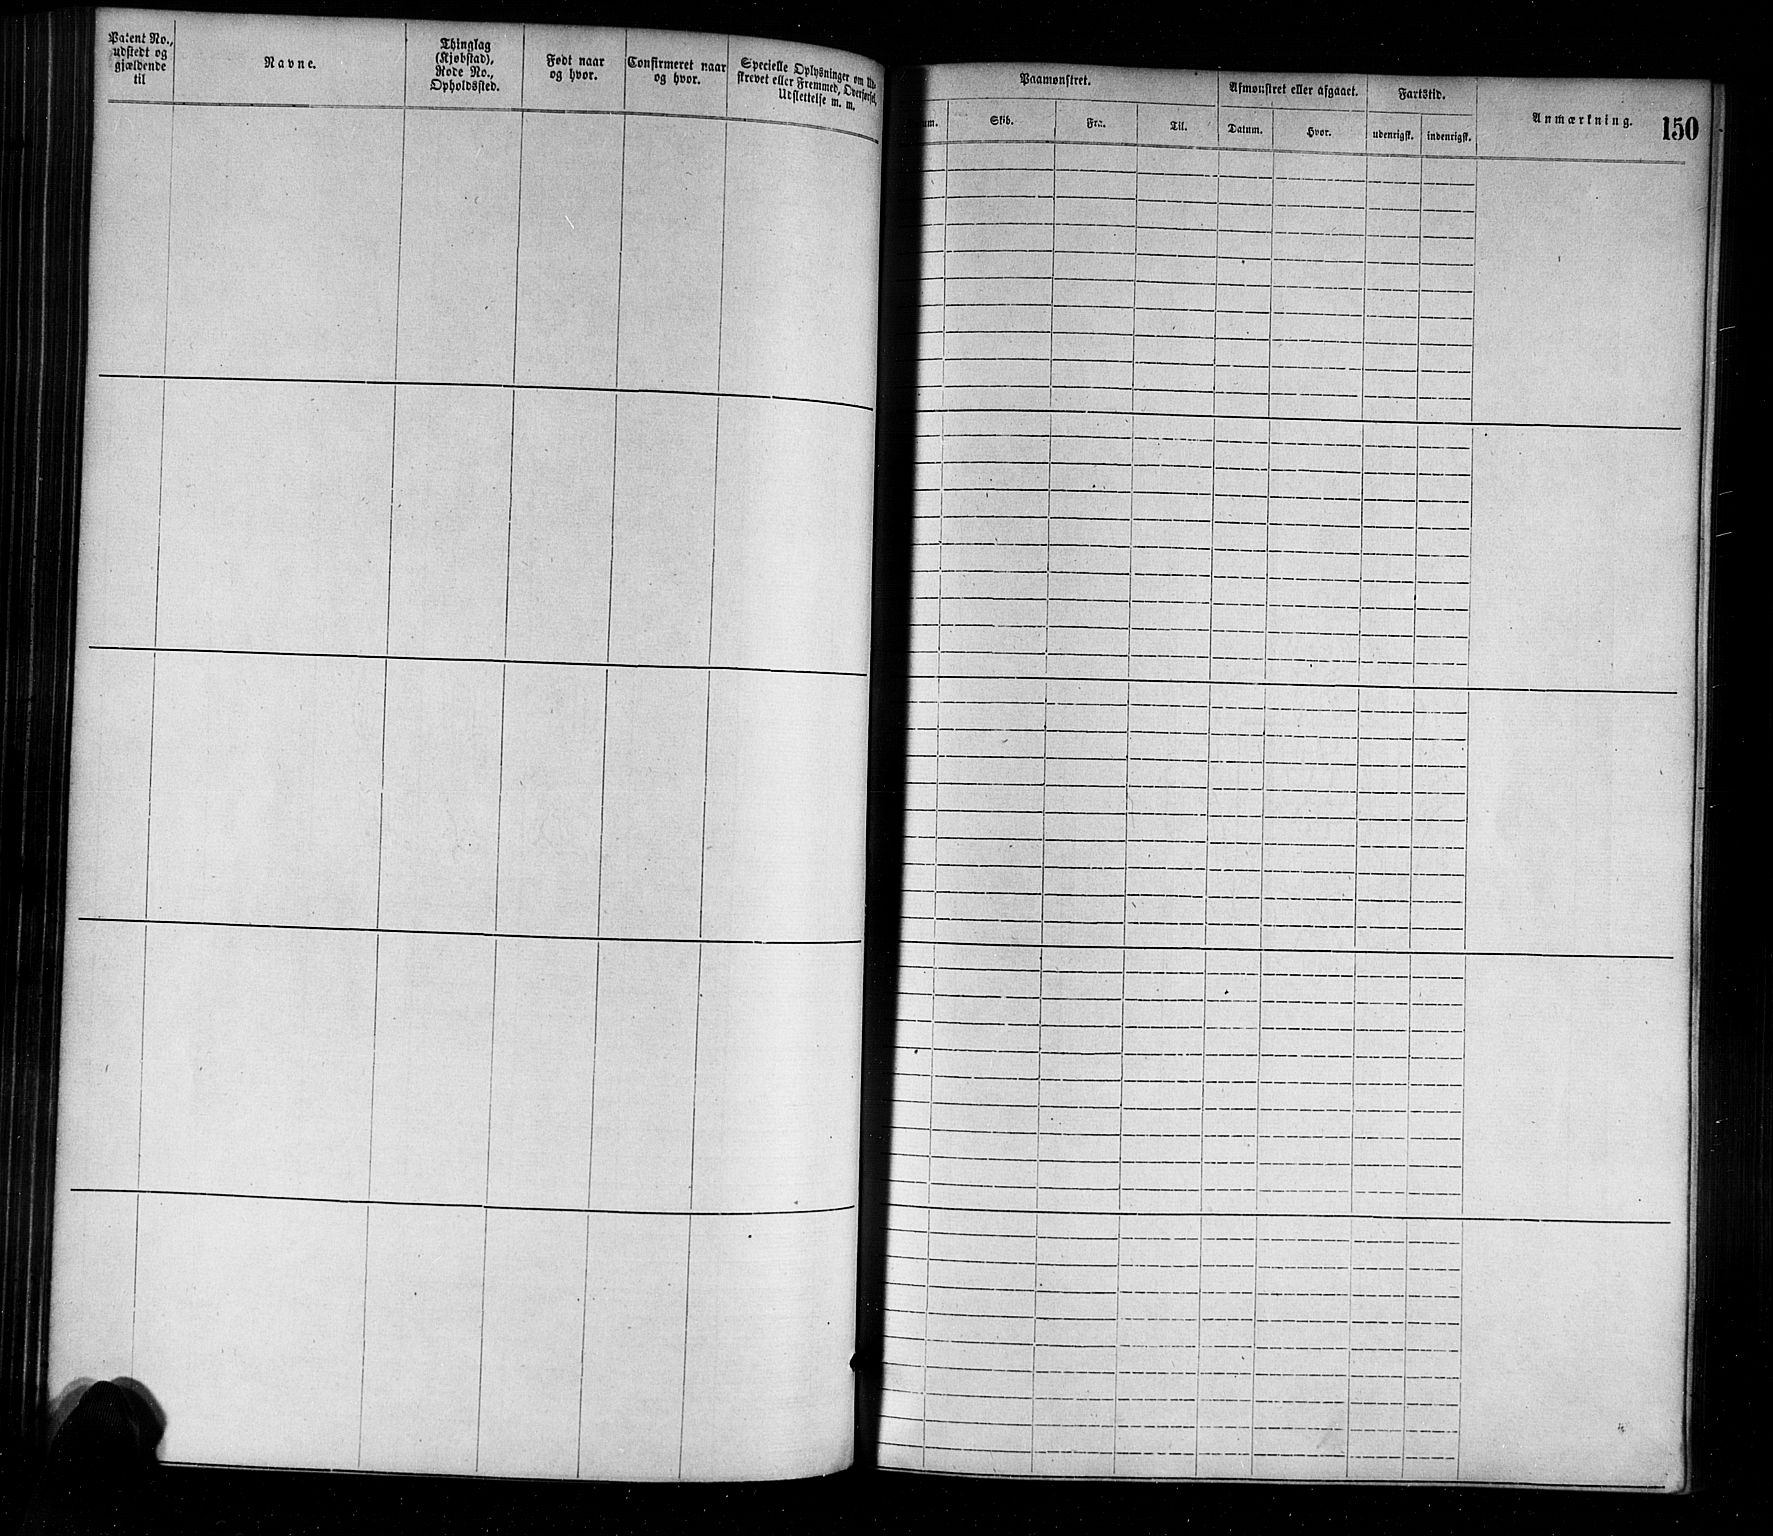 Patent No.,
udstedt og
gjældende
til
Navne.
Thinglag
(Kjøbstad),
Rode No.,
Opholdssted.
Født naar
og hvor.
Confirmeret naar
og hvor.
Specielle Oplysninger om Ud-
skrevet eller Fremmed, Overførsel,
Udslettelse m. m.
Paamønstret.
Afmønstret eller afgaaet.
Fartstid.
Anmærkning.
150
um.
Skib.
Fra.
Til.
Datum.
Hvor.
udenrigsk.
indenrigsk.